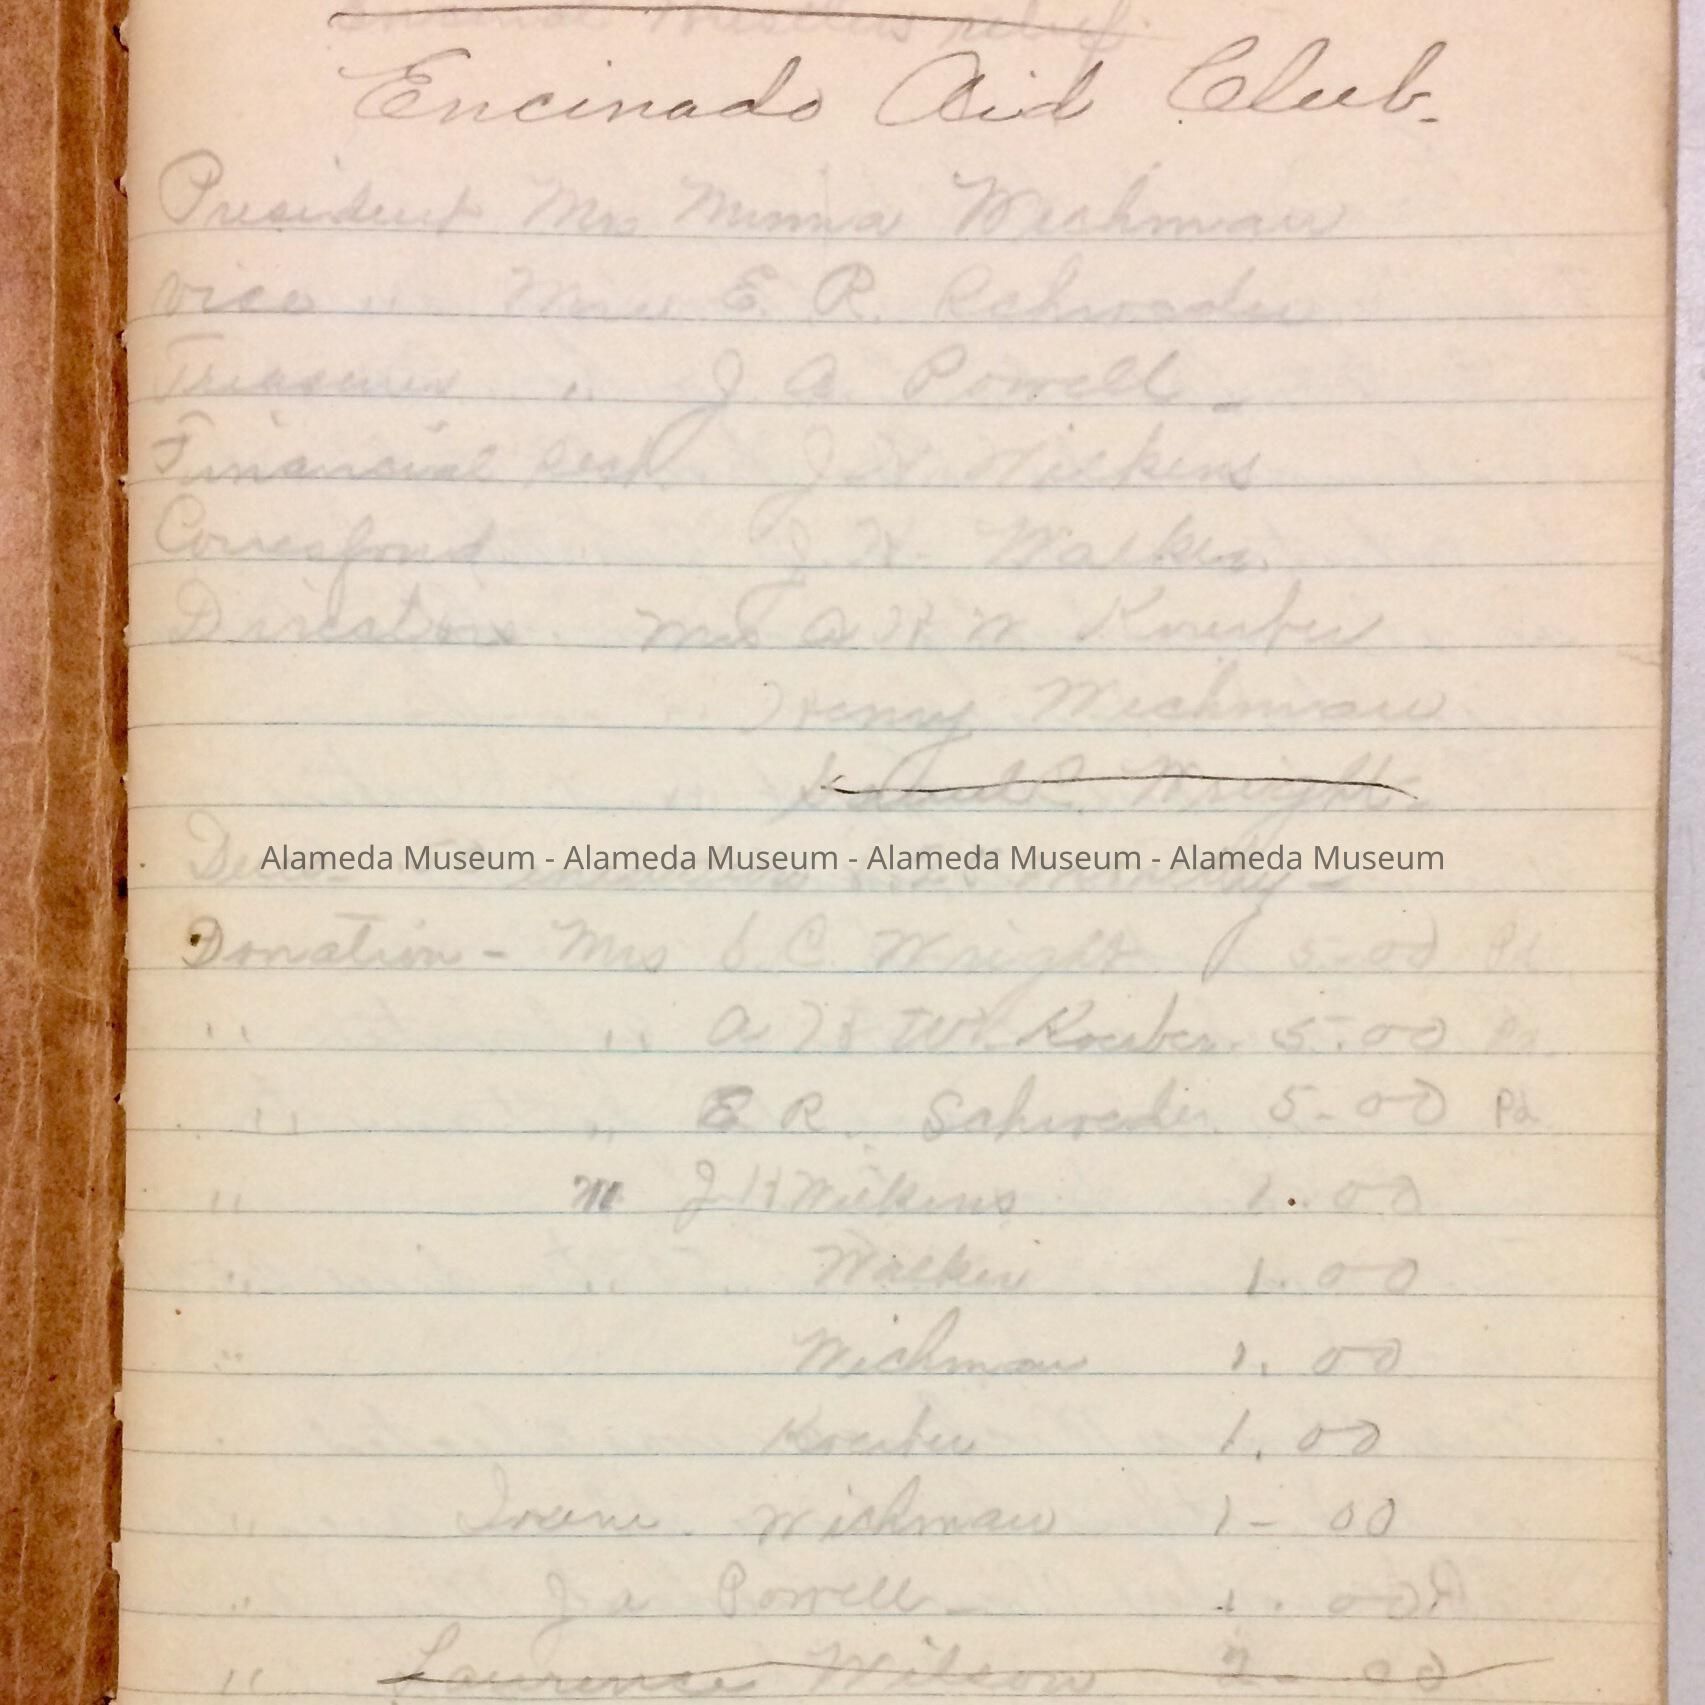 relief
Encinado Aid Club.
President Mrs Minna Wichman
Vice " Mrs E. R. Schroeder
Treasurer " J. A. Powell
Financial Sect. J. H. Wilkens
Correspond J. H. Walker
Directors Mrs A H W Koerber
Henry Wichman
Wright
Alameda Museum - Alameda Museum - Alameda Museum - Alameda Museum
Donation - Mrs S. C. Wright 5-00 Pd
" " A H W. Koerber. 5.00 Pd
" " E R. Schroeder 5-00 Pd
" M J H Wilkens 1.00
" " " Walker 1.00
" Wichman 1.00
Koerber 1.00
" Irene Wichman 1-00
" J A Powell - 1.00
" Laurence Wilson 2-00